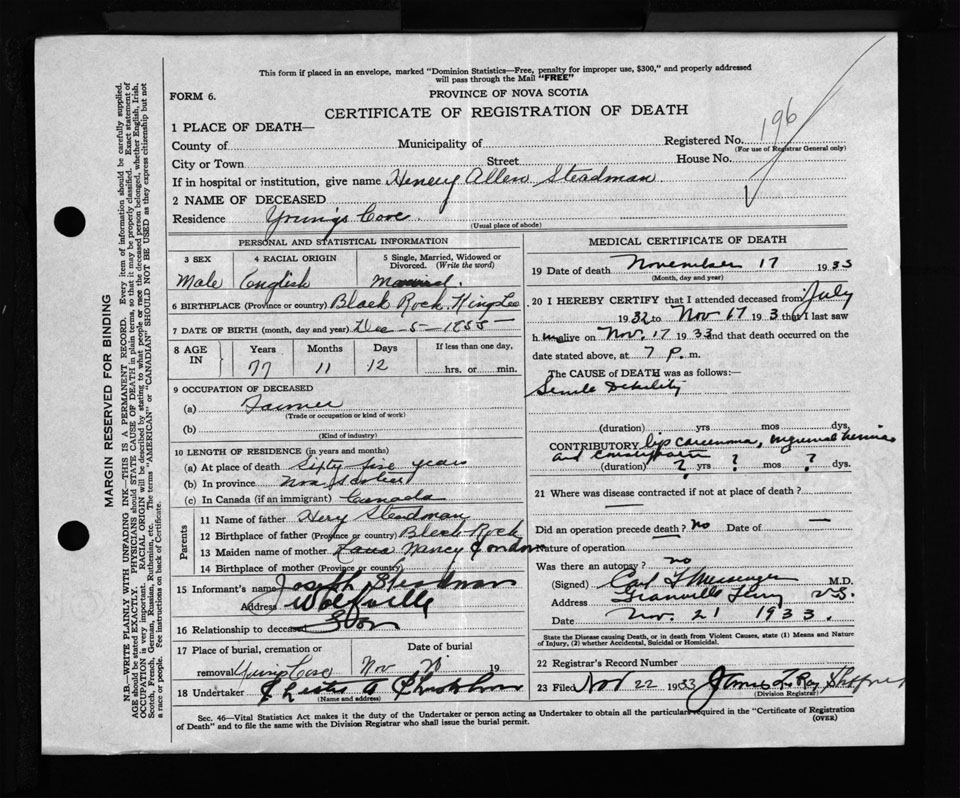 This form if placed in an envelope, marked "Dominion Statistics—Free, penalty for improper use, $300," and properly addressed
will pass through the Mail "FREE"
FORM 6.
PROVINCE OF NOVA SCOTIA
CERTIFICATE OF REGISTRATION OF DEATH
1 PLACE OF DEATH—
Registered No. 196
(For use of Registrar General only)
County of Municipality of
City or Town Street House No.
If in hospital or institution, give name Henery Allen Steadman
2 NAME OF DECEASED
Residence Young's Cove
(Usual place of abode)
PERSONAL AND STATISTICAL INFORMATION
3 SEX 4 RACIAL ORIGIN 5 Single, Married, Widowed or
Divorced. (Write the word)
Male English Married.
6 BIRTHPLACE (Province or country) Black Rock. Kings
7 DATE OF BIRTH (month, day and year) Dec - 5 - 1855
8 AGE IN Years Months Days If less than one day,
77 11 12 hrs. or min.
9 OCCUPATION OF DECEASED
(a) Farmer
(Trade or occupation or kind of work)
(b)
(Kind of industry)
10 LENGTH OF RESIDENCE (in years and months)
(a) At place of death Sixty five years
(b) In province Nova Scotia
(c) In Canada (if an immigrant) Canada
Parents
11 Name of father Hery Steadman
12 Birthplace of father (Province or country) Black Rock
13 Maiden name of mother Nancy
14 Birthplace of mother (Province or country)
15 Informant's name Joseph Steadman
Address Wolfville
16 Relationship to deceased Son
17 Place of burial, cremation or Date of burial
removal Young Cove Nov 20 19
18 Undertaker
(Name and address)
MEDICAL CERTIFICATE OF DEATH
19 Date of death November 17 1933
(Month, day and year)
20 I HEREBY CERTIFY that I attended deceased from July
1932 to Nov 17 1933 that I last saw
him alive on Nov. 17 1933 and that death occurred on the
date stated above, at 7 P. m.
The CAUSE of DEATH was as follows:—
Senile Debility
(duration) yrs mos dys.
CONTRIBUTORY lip carcinoma, inguinal hernia
and constipation
(duration) ? yrs. ? mos ? dys.
21 Where was disease contracted if not at place of death? —
Did an operation precede death? no Date of —
Nature of operation
Was there an autopsy? no
(Signed) Carl Messenger M.D.
Address Granville Ferry N.S.
Date Nov. 21 1933.
State the Disease causing Death, or in death from Violent Causes, state (1) Means and Nature
of Injury, (2) whether Accidental, Suicidal or Homicidal.
22 Registrar's Record Number
23 Filed Nov 22 1933
(Division Registrar)
Sec. 46—Vital Statistics Act makes it the duty of the Undertaker or person acting as Undertaker to obtain all the particulars required in the "Certificate of Registration
of Death" and to file the same with the Division Registrar who shall issue the burial permit.
(OVER)
MARGIN RESERVED FOR BINDING
N.B.—WRITE PLAINLY WITH UNFADING INK—THIS IS A PERMANENT RECORD. Every item of information should be carefully supplied.
AGE should be stated EXACTLY. PHYSICIANS should STATE CAUSE OF DEATH in plain terms, so that it may be properly classified. Exact statement of
OCCUPATION is very important. RACIAL ORIGIN will be described by stating to what people or race the deceased person belonged, whether English, Irish,
Scotch, French, German, Russian, Ruthenian, etc. The terms "AMERICAN" or "CANADIAN" SHOULD NOT BE USED as they express citizenship but not
a race or people. See instructions on back of Certificate.